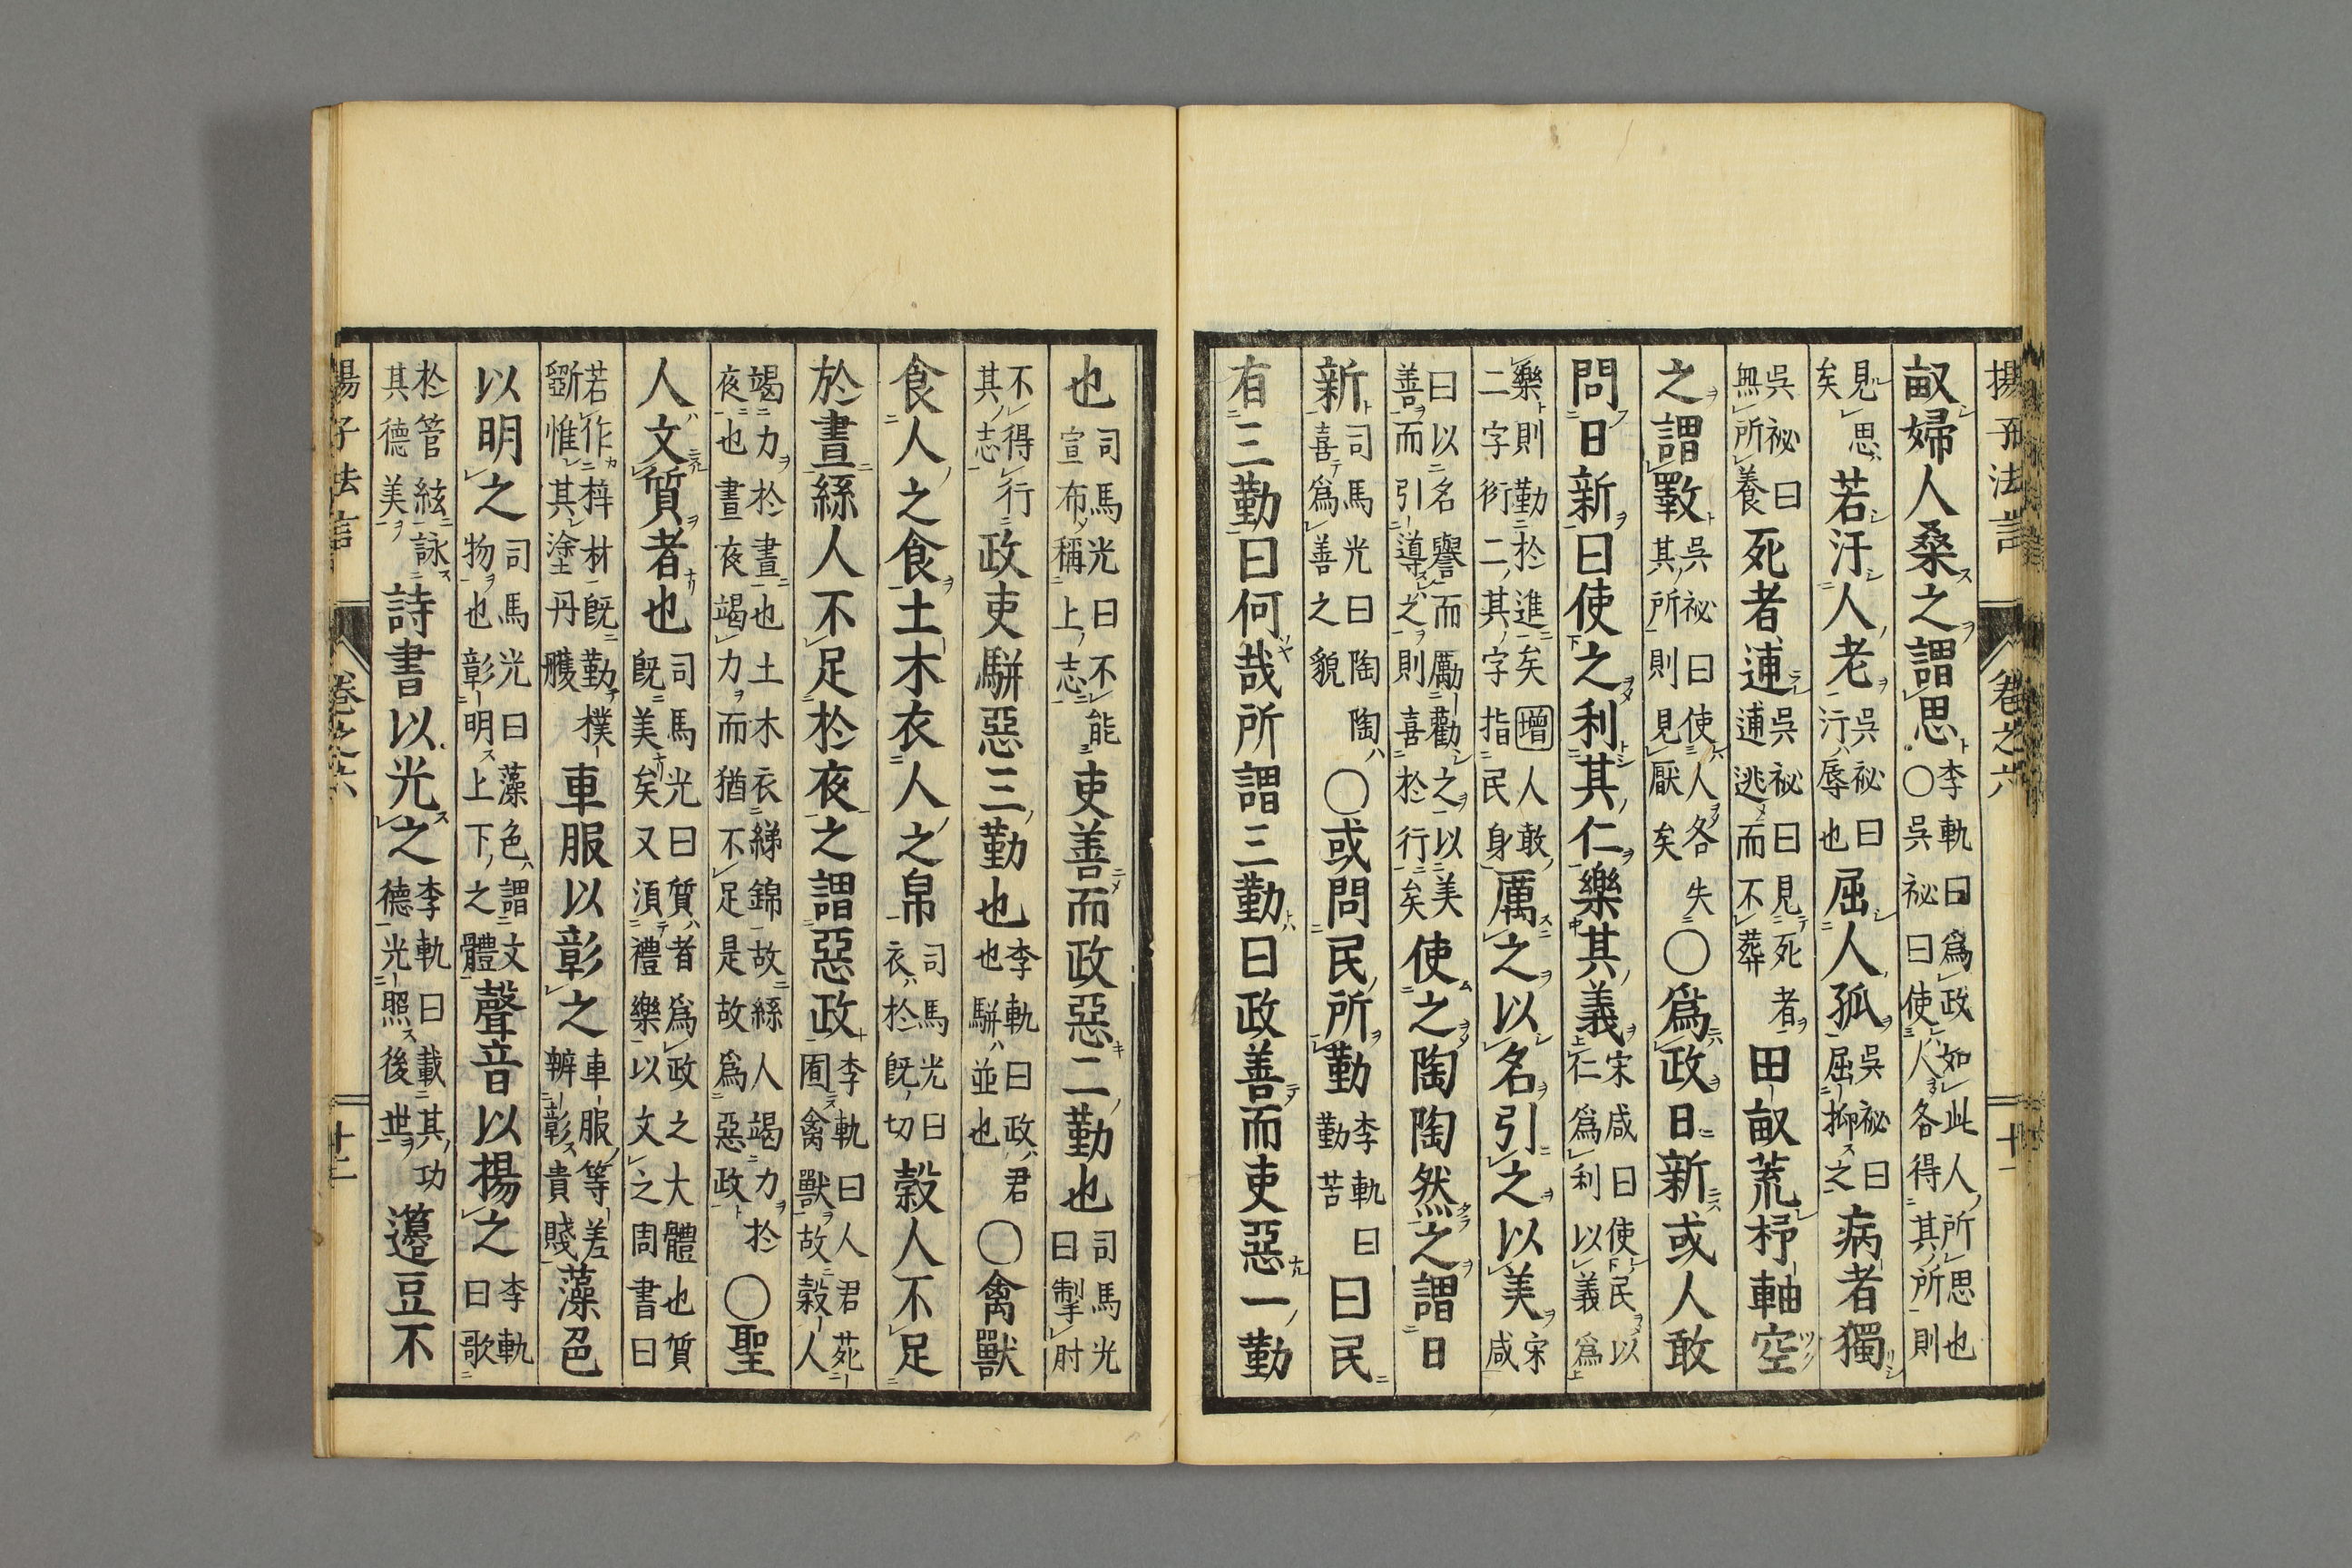 揚子法言 卷之六 十一
畝婦人桑之謂思 李軌曰爲政如此人所思也 ○吳祕曰使人各得其所則
見思 矣 若汙人老 吳祕曰 汙辱也 屈人孤 吳祕曰 屈抑之 病者獨
吳祕曰 無所養 死者逋 吳祕曰見死者 逋逃而不葬 田畝荒杼軸空
之謂斁 吳祕曰使人各失 其所則見厭矣 ○爲政日新或人敢
問日新曰使之利其仁樂其義 宋咸曰使民以 仁爲利以義爲
樂則勤於進矣增人敢 二字衍二其字指民身 厲之以名引之以美 宋 咸
曰以名譽而厲勸之以美 善而引導之則喜於行矣 使之陶陶然之謂日
新 司馬光曰陶陶 喜爲善之貌 ○或問民所勤 李軌曰 勤苦 曰民
有三勤曰何哉所謂三勤曰政善而吏惡一勤
也 司馬光曰不能 宣布稱上志 吏善而政惡二勤也 司馬光 曰掣肘
不得行 其志 政吏駢惡三勤也 李軌曰政君 也駢並也 ○禽獸
食人之食土木衣人之帛 司馬光曰 衣於旣切 穀人不足
於晝絲人不足於夜之謂惡政 李軌曰人君苑 囿禽獸故穀人
竭力於晝也土木衣綈錦故絲人竭力於 夜也晝夜竭力而猶不足是故爲惡政 ○聖
人文質者也 司馬光曰質者爲政之大體也質 旣美矣又須禮樂以文之周書曰
若作梓材旣勤樸 斵惟其塗丹雘 車服以彰之 車服等差 辨彰貴賤 藻色
以明之 司馬光曰藻色謂文 物也彰明上下之體 聲音以揚之 李軌 曰歌
於管絃詠 其德美 詩書以光之 李軌曰載其功 德光照後世 籩豆不
揚子法言 卷之六 十二